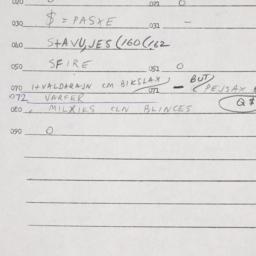 020 021 O
030 $ = PASXE 031 -
040 STAVUJES (160(162
050 SFIRE 051 O
BUT
070 I+VALDARAJN CM BIKSLAX 071 - ( PEJSAX
072 VARFER Q $
080 MILXIES CLN BLINCES
090 O